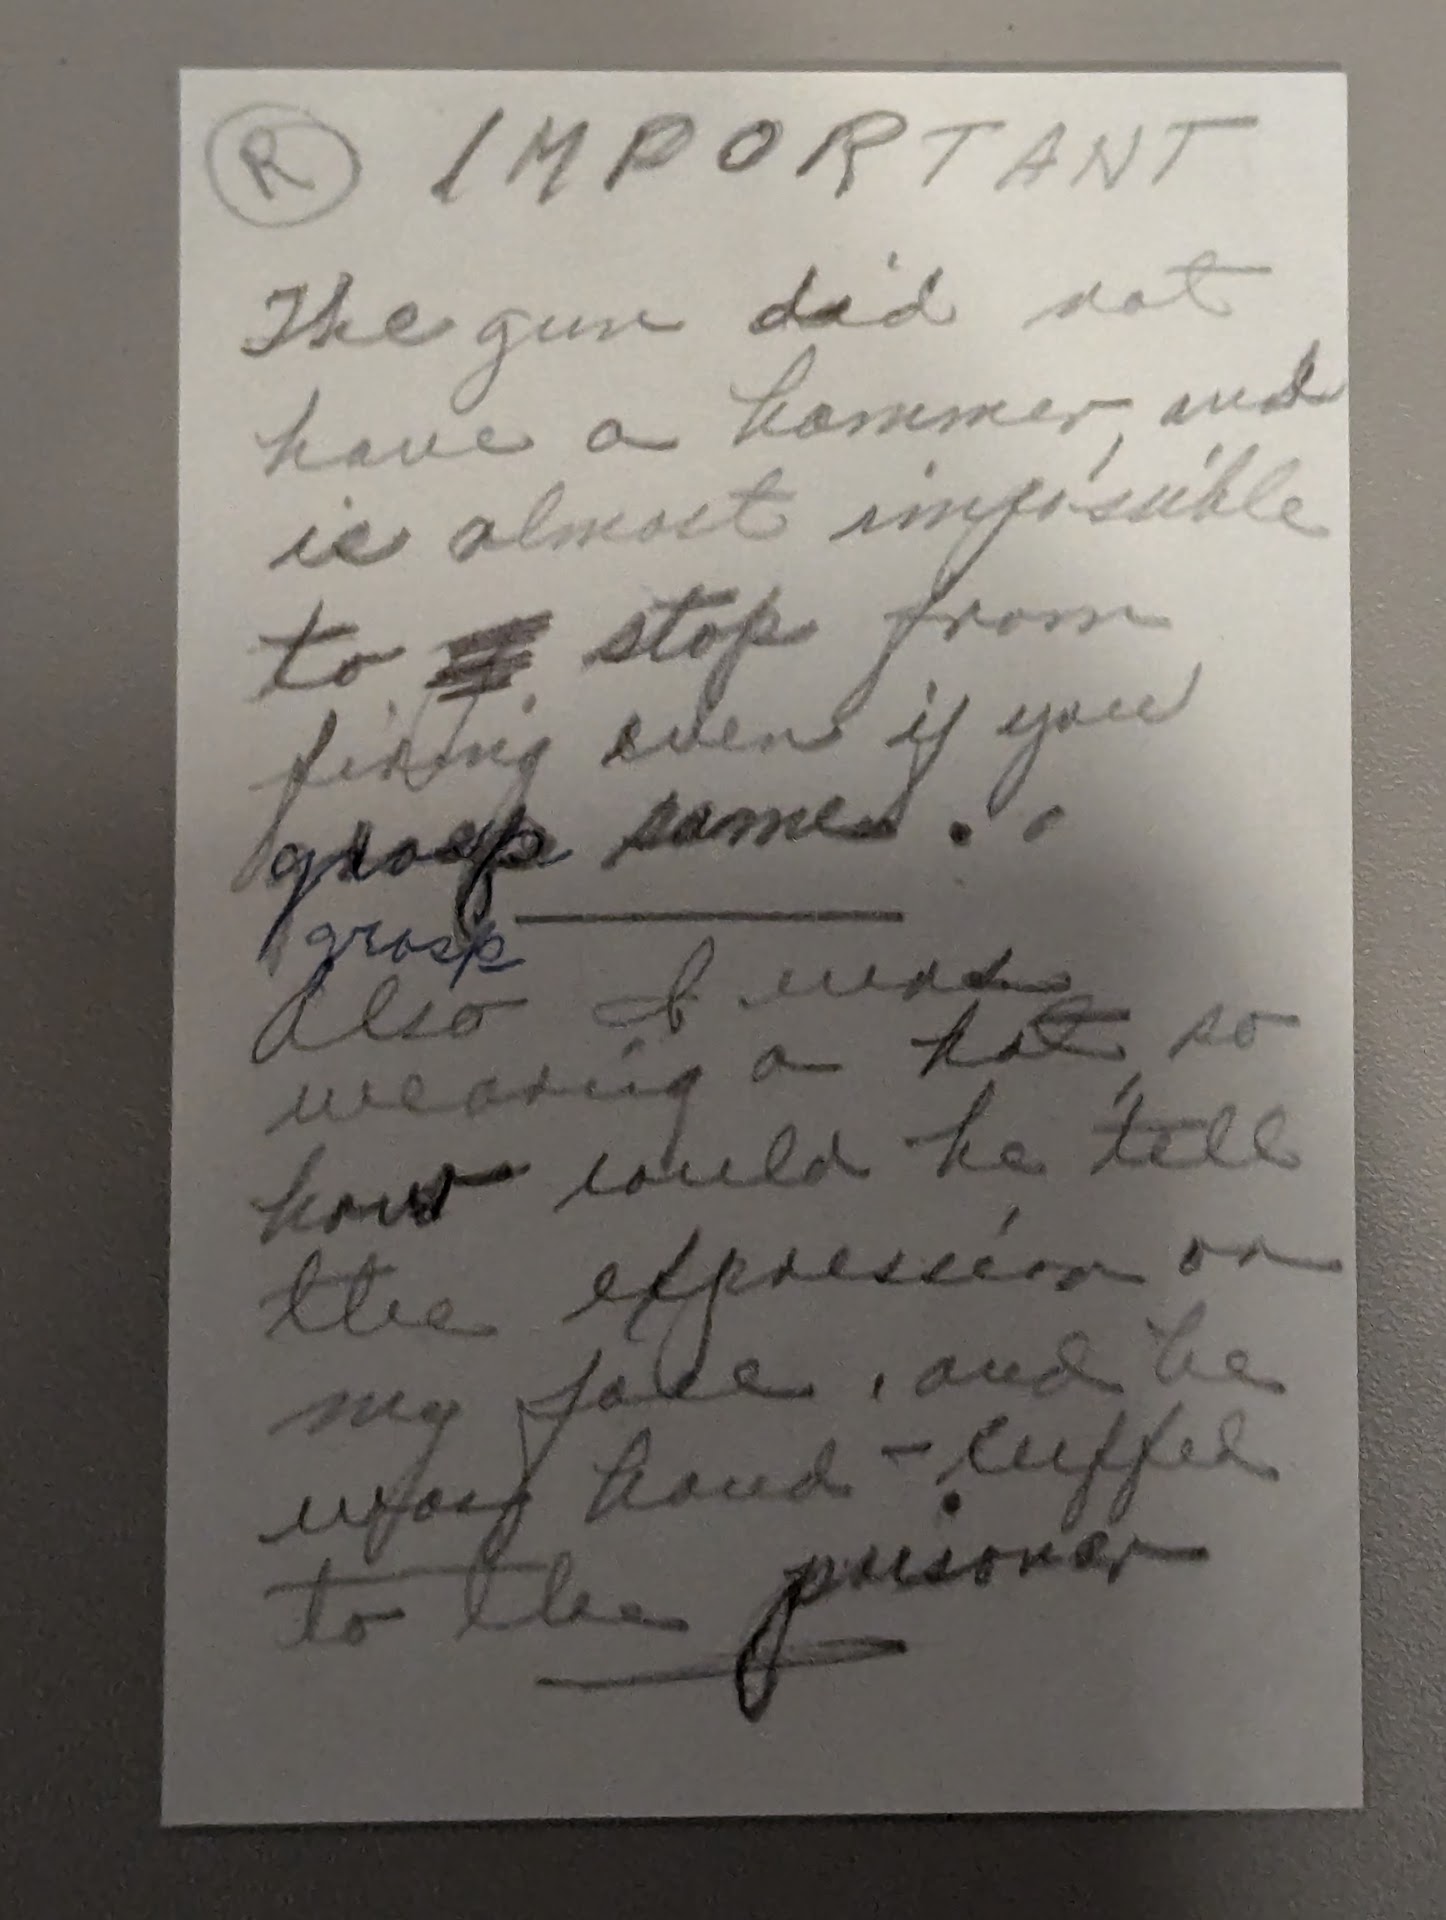 R IMPORTANT
The gun did not
have a hammer, and
is almost impossible
to stop from
firing even if you
grasp same..
grasp
Also I was
wearing a hat, so
how could he tell
the expression on
my face, and he
was hand-cuffed
to the prisoner